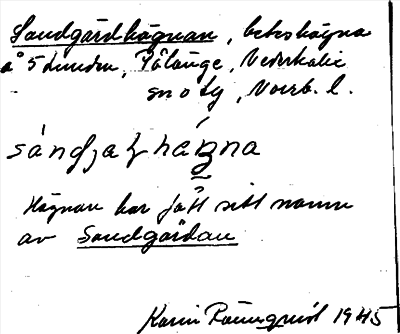 Sandgårdhägnan, beteshägna
å S Lunden, Pålänge, Nederkalix
sn o tg, Norrb. l.
sándjaḷhágna
Hägnan har fått sitt namn
av Sandgårdan
Karin 1945